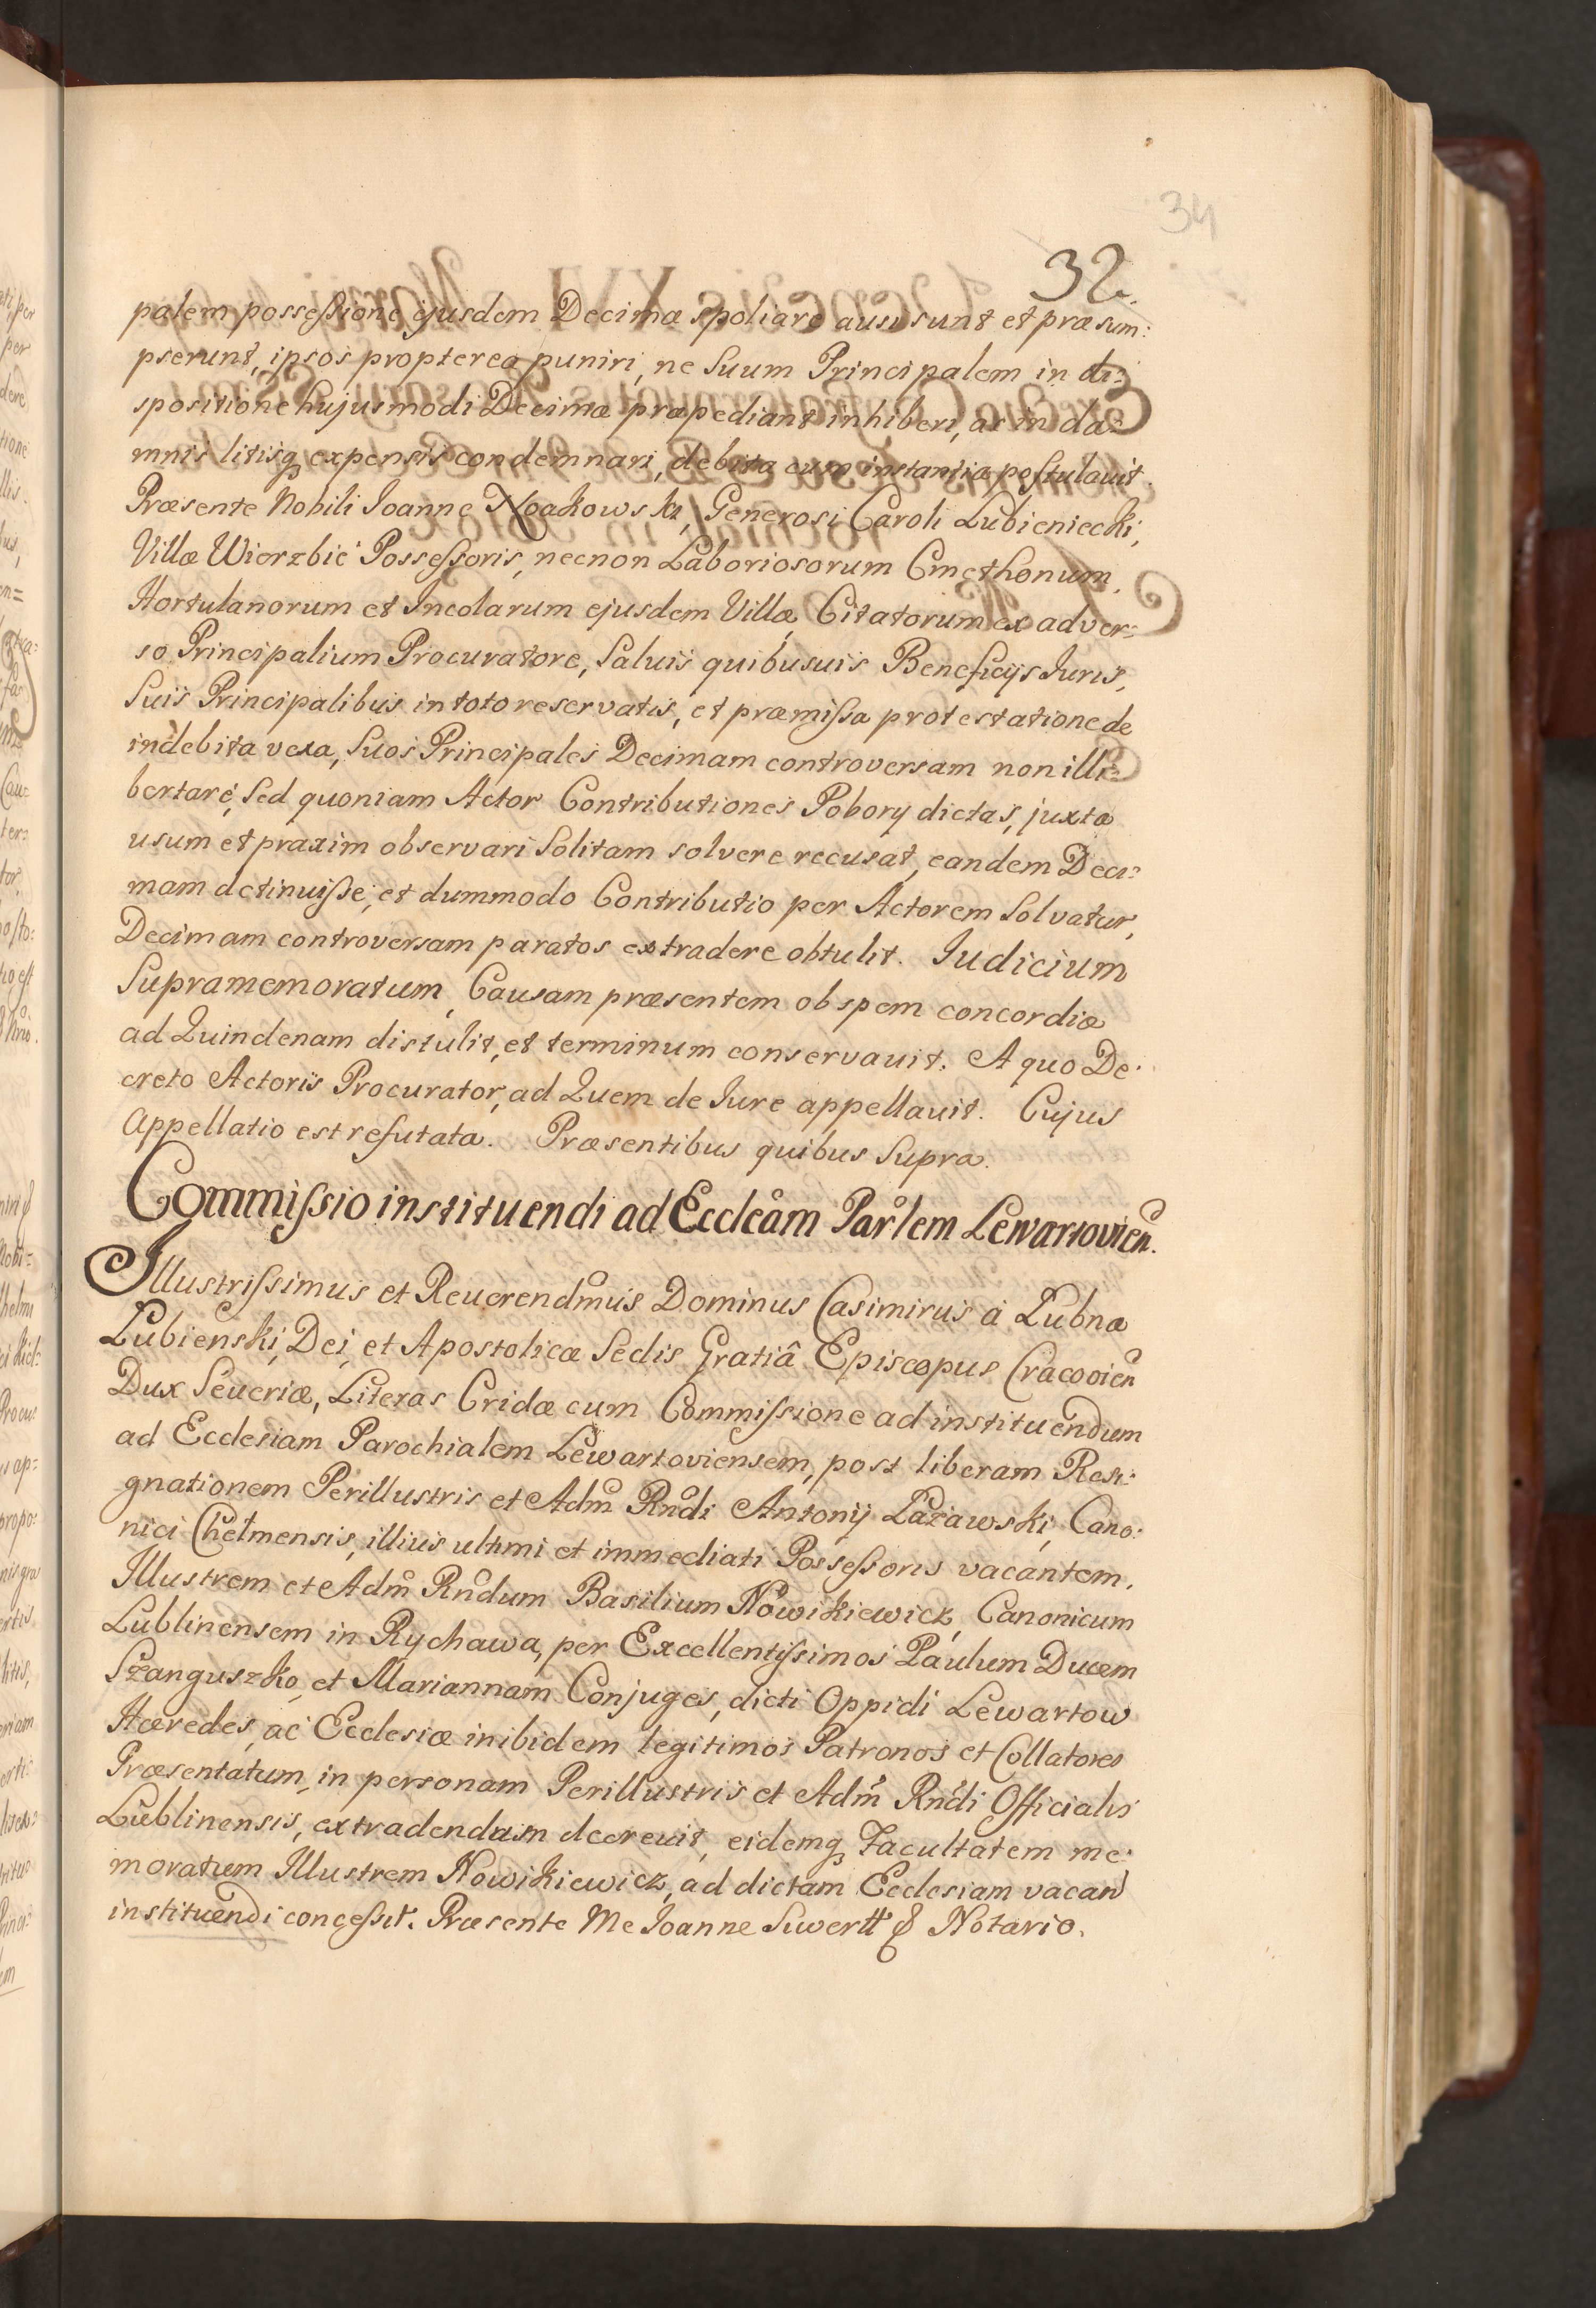 34
32.
palem possessione ejusdem Decimæ spoliare ausi sunt et præsum:
pserunt, ipsos propterea puniri, ne Suum Principalem in di:
spositione hujusmodi Decimæ præpediant inhiberi, ac in da:
mnis litisq expensis condemnari, debita cum instantia postulauit.
Præsente Nobili Joanne Noakowski, Generosi Caroli Lubieniecki,
Villæ Wierzbie Possessoris, necnon Laboriosorum Cmethonum,
Hortulanorum et Incolarum ejusdem Villæ Citatorum ex adver:
so Principalium Procuratore, Saluis quibusuis Beneficijs Iuris,
Suis Principalibus in toto reservatis, et præmissa protestatione de
indebita vexa, Suos Principales Decimam controversam non illi:
bertare, Sed quoniam Actor Contributiones Pobory dictas, juxta
usum et praxim observari Solitam solvere recusat, eandem Deci:
mam detinuisse, et dummodo Contributio per Actorem Solvatur,
Decimam controversam paratos extradere obtulit. Iudicium
Supramemoratum, Causam præsentem ob spem concordiæ
ad Quindenam distulit, et terminum conservauit. A quo De:
creto Actoris Procurator, ad Quem de Iure appellauit. Cujus
Appellatio est refutata. Præsentibus quibus Supra.
Commissio instituendi ad Eccleam Parlem Lewartovien.
Illustrissimus et Reuerendmus Dominus Casimirus à Łubna
Łubienski, Dei, et Apostolicæ Sedis Gratiâ Episcopus Cracovien
Dux Seueriæ, Literas Cridæ cum Commissione ad instituendum
ad Ecclesiam Parochialem Lewartoviensem, post liberam Resi:
gnationem Perillustris et Adm Rndi Antonij Łazawski, Cano:
nici Chełmensis, illius ultimi et immediati Possessoris vacantem,
Illustrem et Adm Rndum Basilium Nowikiewicz, Canonicum
Lublinensem in Rychawa, per Excellentissimos Paulum Ducem
Szanguszko, et Mariannam Conjuges, dicti Oppidi Lewartow
Hæredes, ac Ecclesiæ inibidem legitimos Patronos et Collatores
Præsentatum, in personam Perillustris et Adm Rndi Officialis
Lublinensis, extradendam decreuit, eidemq Facultatem me:
moratum Illustrem Nowikiewicz, ad dictam Ecclesiam vacan
instituendi concessit. Præsente Me Joanne Suwertt Notario.